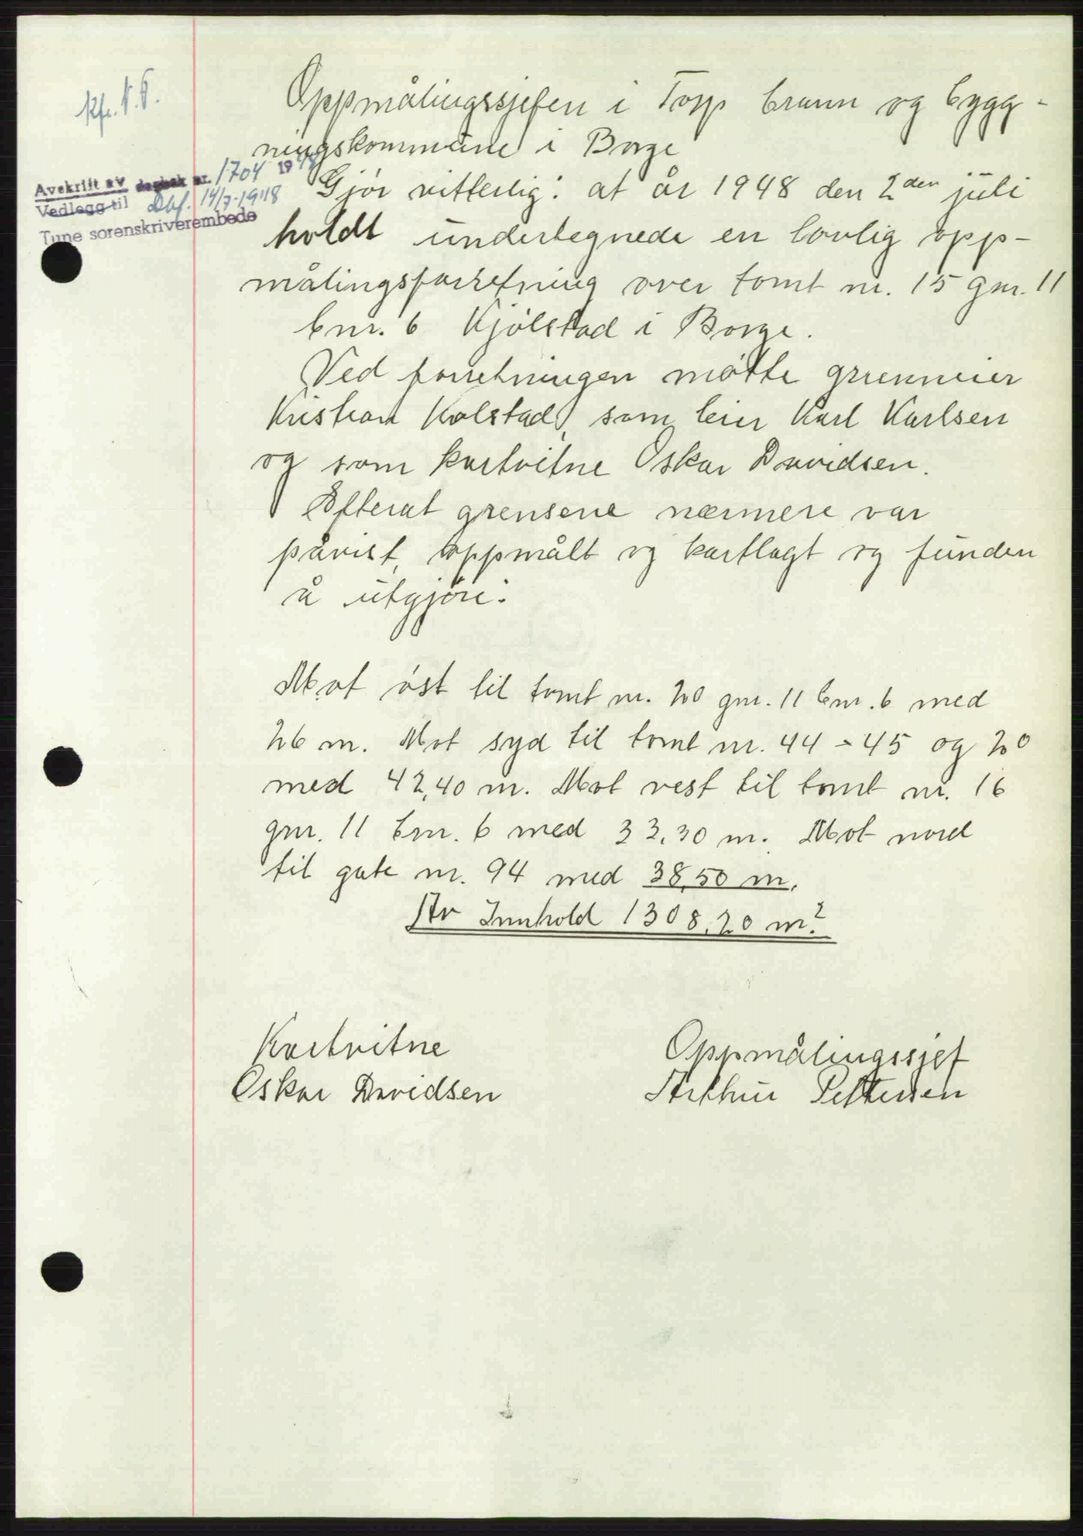 Kfr. N.B.
Oppmålingssjefen i Torp brann og bygg-
ningskommune i Borge
Avskrift av dagbok nr. 1704 1948
Vedlegg til Dbf. 14/7-1948
Tune sorenskriverembede
Gjör vitterlig: at år 1948 den 2den juli
holdt undertegnede en lovlig opp-
målingsforretning over tomt nr. 15 gnr. 11
bnr. 6 Kjölstad i Borge.
Ved forretningen mötte grunneier
Kristian Kolstad, som leier Karl Karlsen
og som kartvitne Oskar Davidsen.
Efterat grensene nærmere var
påvist, oppmålt og kartlagt og funden
å utgjöre:
Mot öst til tomt nr. 20 gnr. 11 bnr. 6 med
26 m. Mot syd til tomt nr. 44 - 45 og 20
med 42,40 m. Mot vest til tomt nr. 16
gnr. 11 bnr. 6 med 33,30 m. Mot nord
til gate nr. 94 med 38,50 m.
Av Innhold 1308,20 m²
Kartvitne
Oskar Davidsen
Oppmålingssjef
Arthur Pettersen